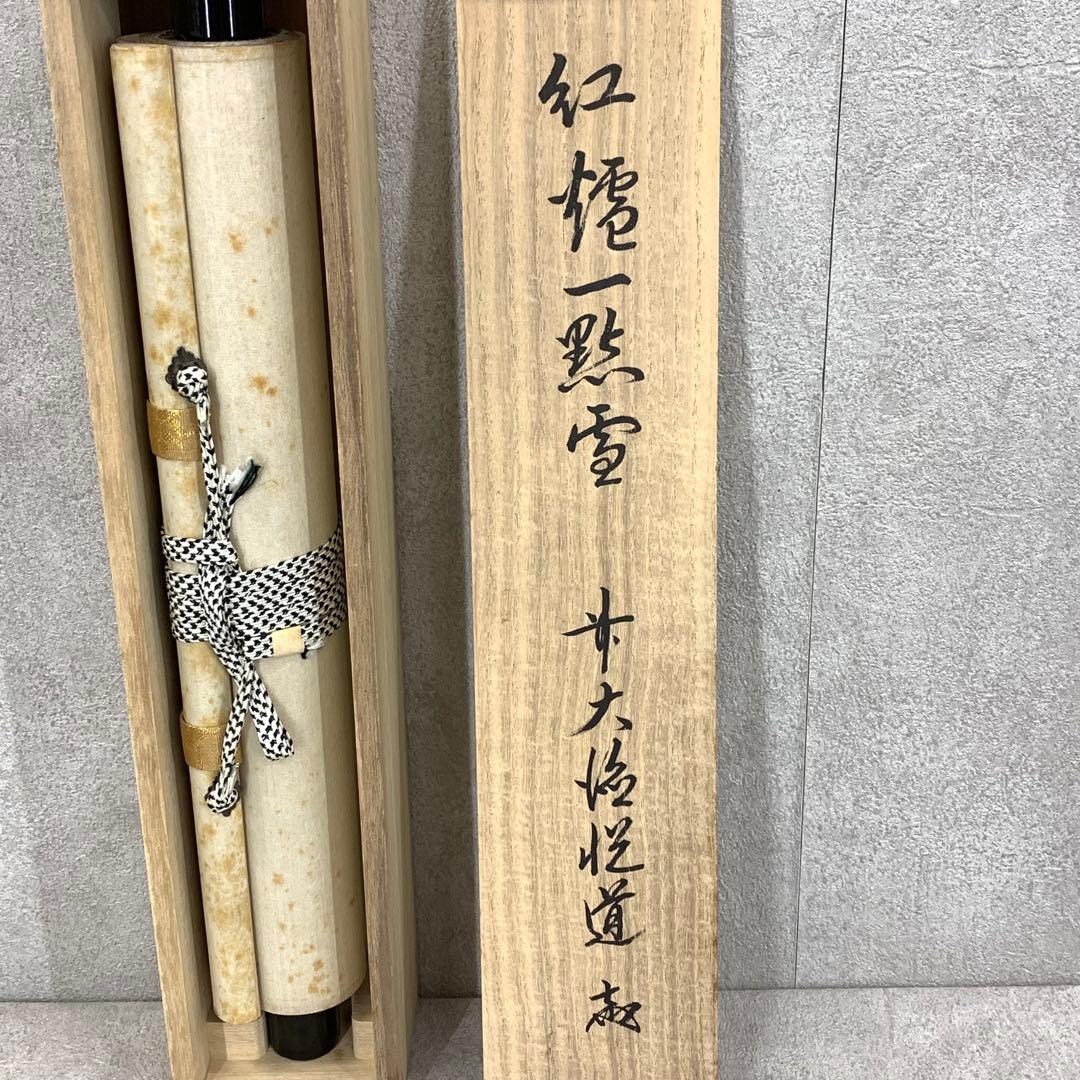 紅爐一點雪
前大徳悦道